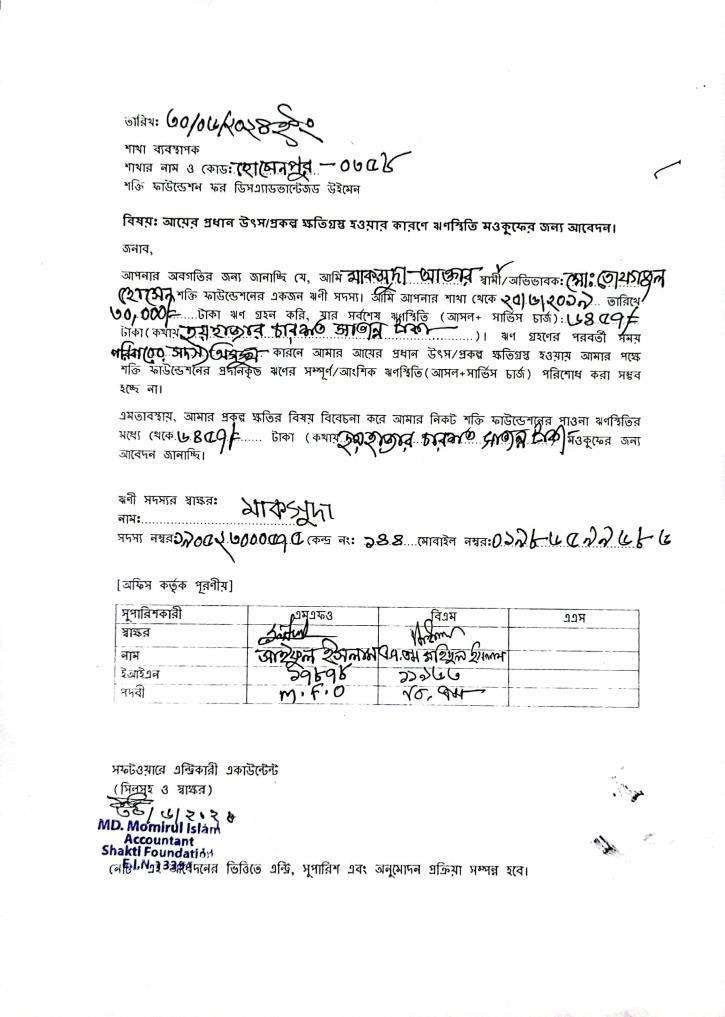 তারিখ: ৩০/০৬/২০২৪ইং
শাখা ব্যবস্থাপক
শাখার নাম ও কোড: হোসেনপুর - ০৩৫৮
শক্তি ফাউন্ডেশন ফর ডিসএ্যাডভান্টেজড উইমেন
বিষয়: আয়ের প্রধান উৎস/প্রকল্প ক্ষতিগ্রস্ত হওয়ার কারণে ঋণস্থিতি মওকুফের জন্য আবেদন।
জনাব,
আপনার অবগতির জন্য জানাচ্ছি যে, আমি মাকসুদা আক্তার স্বামী/অভিভাবক: মো:
হোসেন শক্তি ফাউন্ডেশনের একজন ঋণী সদস্য। আমি আপনার শাখা থেকে ২০/৩/২০১৯ তারিখে
৩০,০০০/- টাকা ঋণ গ্রহন করি, যার সর্বশেষ ঋণস্থিতি (আসল+ সার্ভিস চার্জ): ৬৪৫৭/-
টাকা (কথায় ছয়হাজার চারশত সাতান্ন টাকা )। ঋণ গ্রহণের পরবর্তী সময়
পরিবারের সদস্য অসুস্থ কারনে আমার আয়ের প্রধান উৎস/প্রকল্প ক্ষতিগ্রস্ত হওয়ায় আমার পক্ষে
শক্তি ফাউন্ডেশনের প্রদানিকৃত ঋণের সম্পূর্ণ/আংশিক ঋণস্থিতি (আসল+সার্ভিস চার্জ) পরিশোধ করা সম্ভব
হচ্ছে না।
এমতাবস্থায়, আমার প্রকল্প ক্ষতির বিষয় বিবেচনা করে আমার নিকট শক্তি ফাউন্ডেশনের পাওনা ঋণস্থিতির
মধ্যে থেকে ৬৪৫৭/- টাকা (কথায় ছয়হাজার চারশত সাতান্ন টাকা) মওকুফের জন্য
আবেদন জানাচ্ছি।
ঋণী সদস্যর স্বাক্ষর: মাকসুদা
নাম:
সদস্য নম্বর: কেন্দ্র নং: ১৪৪ মোবাইল নম্বর:
[অফিস কর্তৃক পূরণীয়]
সুপারিশকারী এমএফও বিএম এএস
স্বাক্ষর
নাম সাইফুল ইসলাম এ.কে.এম ইসলাম
ইআইএন ১৭৮৭৪ ১১৯৬৬
পদবী M.F.O
সফটওয়ারে এন্ট্রিকারী একাউন্টেন্ট
(সিলসহ ও স্বাক্ষর)
MD. Momirul Islam
Accountant
Shakti Foundation
E.I.N-13394
নোট: এই আবেদনের ভিত্তিতে এন্ট্রি, সুপারিশ এবং অনুমোদন প্রক্রিয়া সম্পন্ন হবে।